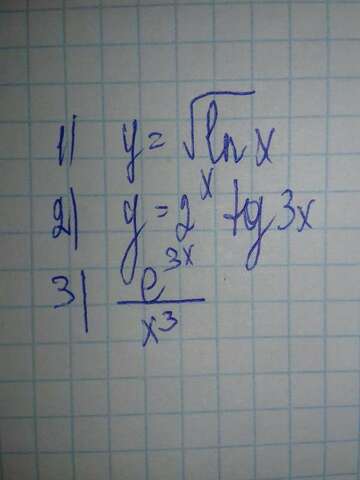 1) y = √ln x
2) y = 2^x tg 3x
3) e^3x / x^3